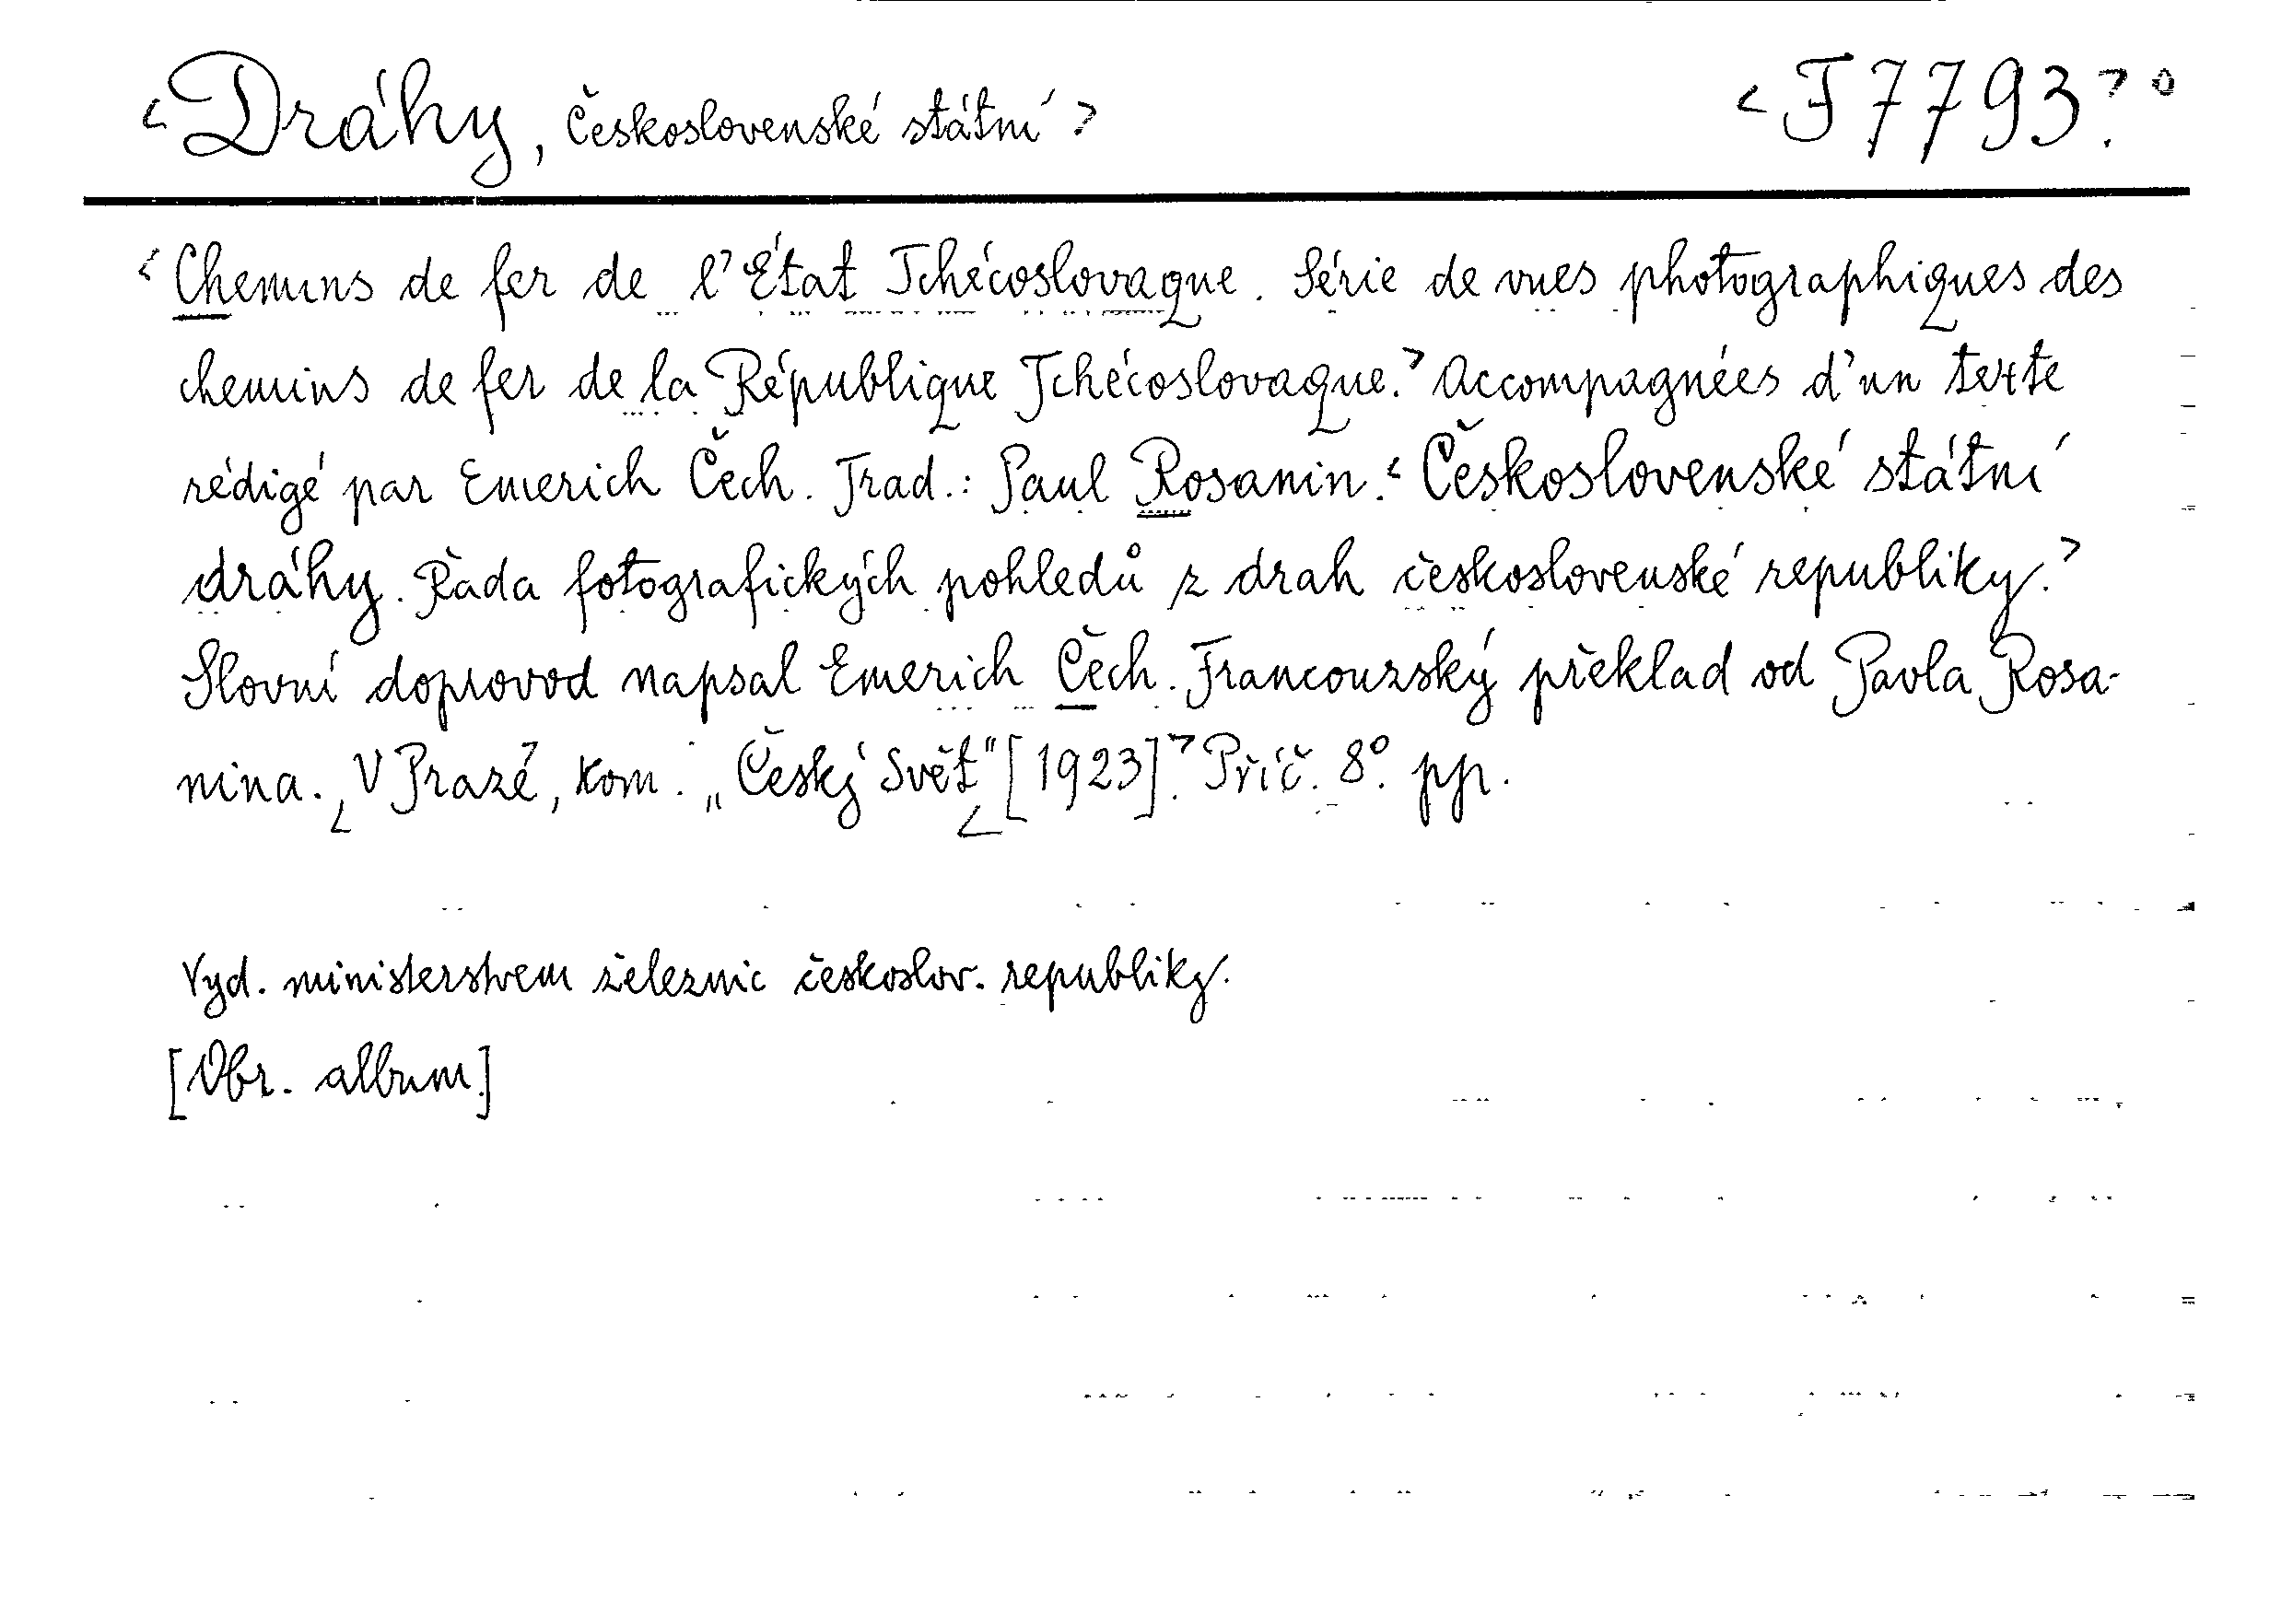 <Dráhy, Československé státní> <F 7793.>°
<Chemins de fer de l'État Tchécoslovaque. Série de vues photographiques des
chemins de fer de la République Tchécoslovaque.> Accompagnées d'un texte
rédigé par Emerich Čech. Trad.: Paul Rosanin. <Československé státní
dráhy. Řada fotografických pohledů z drah československé republiky.>
Slovní doprovod napsal Emerich Čech. Francouzský překlad od Pavla Rosa-
nina. <V Praze>, kom. „Český Svět" <[1923].> Příč. 8°. pp.
Vyd. ministerstvem železnic českoslov. republiky.
[Obr. album]